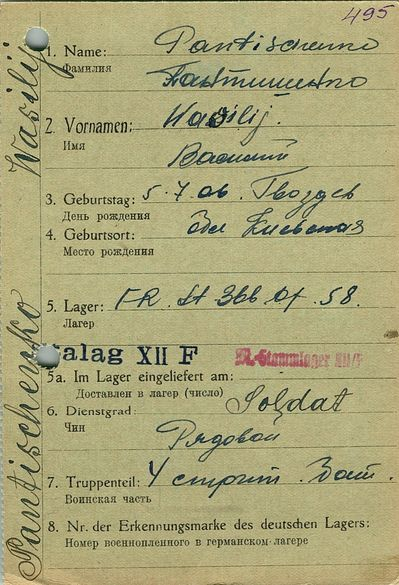 495
1. Name: Pantischenko
Фамилия Пантищенко
2. Vornamen: Wasilij.
Имя
Василий
3. Geburtstag: 5.7.06. Гвоздев
День рождения
4. Geburtsort: Обл Киевская
Место рождения
5. Lager: FR. St 366
Лагер
Stalag XII F M.-Stammlager XII/F
5a. Im Lager eingeliefert am:
Доставлен в лагер (число)
6. Dienstgrad: Soldat
Чин
Рядовой
7. Truppenteil: Бат.
Воинская часть
8. Nr. der Erkennungsmarke des deutschen Lagers:
Номер военнопленного в германском лагере
Pantischenko Wasilij